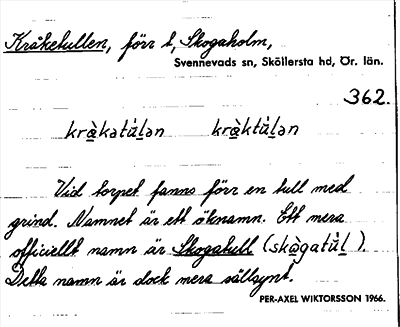 Kråketullen, förr t, Skogaholm,
Svennevads sn, Sköllersta hd, Ör. län.
362.
krà̱katù̱lən krà̱ktù̱lən
Vid torpet fanns förr en tull med
grind. Namnet är ett öknamn. Ett mera
officiellt namn är Skogatull (skò̱gatù̱l).
Detta namn är dock mera sällsynt.
PER-AXEL WIKTORSSON 1966.